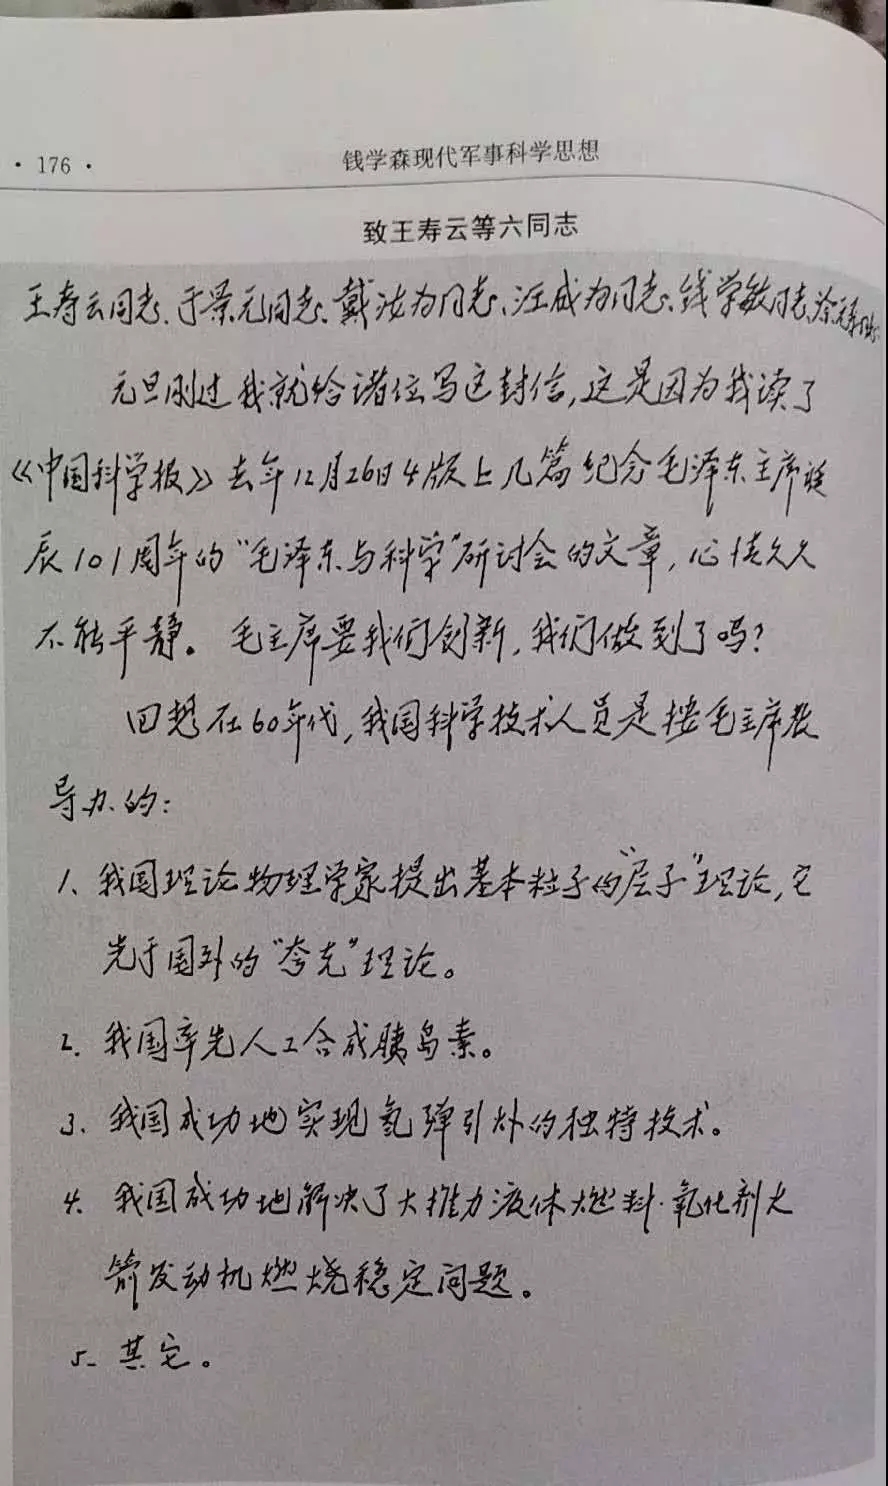 · 176 ·
钱学森现代军事科学思想
致王寿云等六同志
王寿云同志、于景元同志、戴汝为同志、汪成为同志、钱学敏同志、涂元季同志:
元旦刚过我就给诸位写这封信,这是因为我读了
《中国科学报》去年12月26日4版上几篇纪念毛泽东主席诞
辰101周年的“毛泽东与科学”研讨会的文章,心情久久
不能平静。毛主席要我们创新,我们做到了吗?
回想在60年代,我国科学技术人员是按毛主席教
导办的:
1、我国理论物理学家提出基本粒子的“层子”理论,它
先于国外的“夸克”理论。
2. 我国率先人工合成胰岛素。
3、我国成功地实现氢弹引爆的独特技术。
4. 我国成功地解决了大推力液体燃料·氧化剂火
箭发动机燃烧稳定问题。
5. 其它。